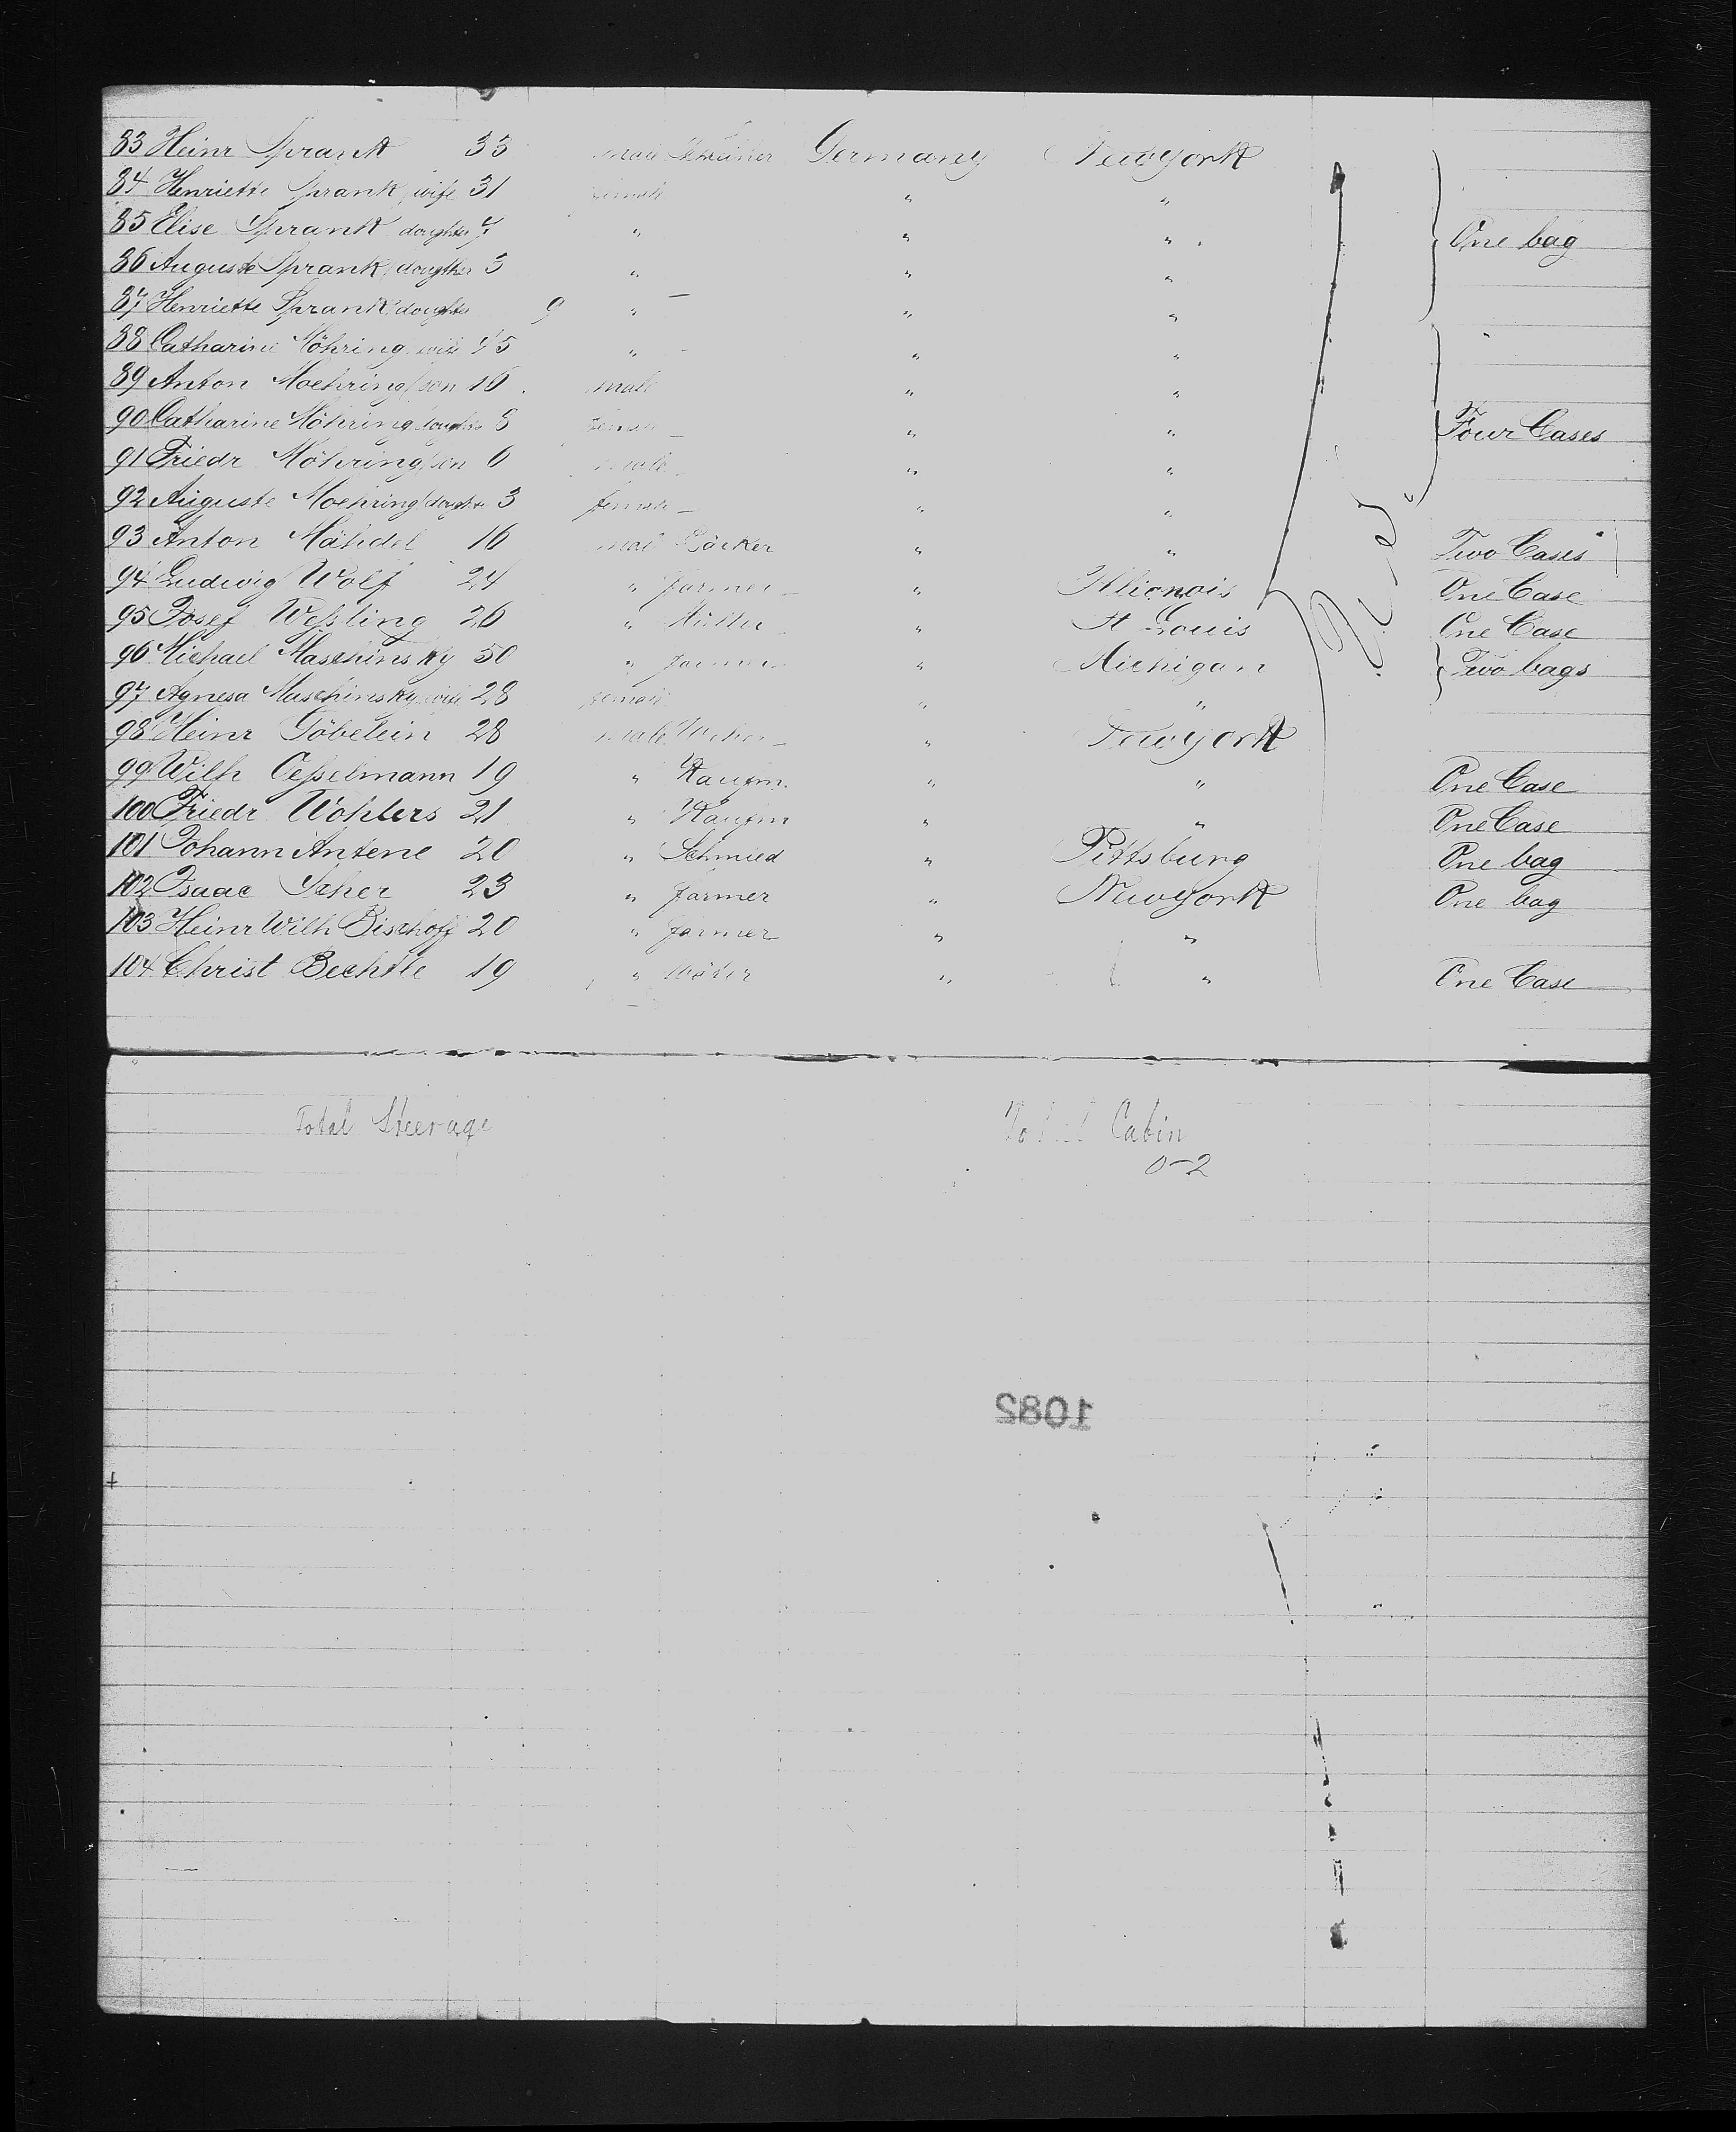 83 Heinr Sprank 33 male Germany Newyork
84 Henriette Sprank (wife 31 female " "
85 Elise Sprank doughter 7 " " " One bag
86 Auguste Sprank (dougther 3 " " "
87 Henriette Sprank (doughter 9 " " "
88 Catharine Möhring wife 45 " " "
89 Anton Moehring (son 16 male " "
90 Catharine Möhring doughter 8 female " " Four Cases
91 Friedr Möhring (son 6 male " "
92 Auguste Moehring (doughter 3 female " "
93 Anton 16 male Bäcker " " Two Cases
94 Ludwig Wolf 24 " farmer " Illionois One Case
95 Josef Weſsling 26 " Müller " St Louis One Case
96 Michael Maschinsky 50 " farmer " Michigan Two bags
97 Agnesa Maschinsky wife 28 female " "
98 Heinr Göbelein 28 male Weber " Newyork
99 Wilh Oeſselmann 19 " Kaufm. " " One Case
100 Friedr Wohlers 21 " Kaufm " " One Case
101 Johann Antene 20 " Schmied " Pittsburg One bag
102 Isaac Scher 23 " farmer " Newyork One bag
103 Heinr Wilh Bischoff 20 " farmer " "
104 Christ Bechtle 19 " " " One Case
Total Steerage Total Cabin
0-2
1082